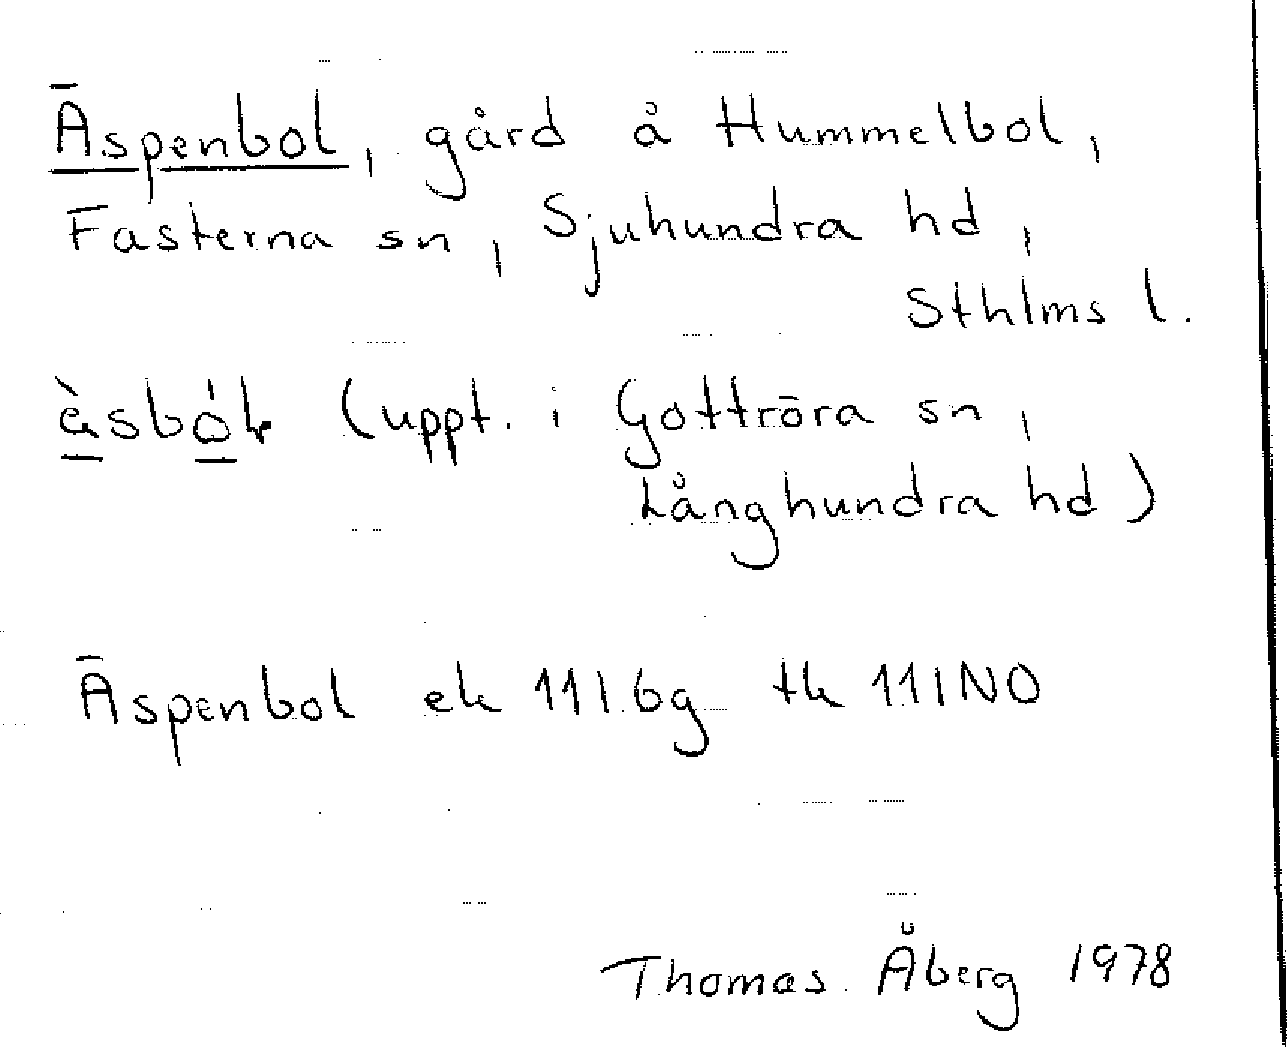 Äspenbol, gård å Hummelbol,
Fasterna sn, Sjuhundra hd,
Sthlms l.
(uppt. i Gottröra sn,
Långhundra hd)
Äspenbol ek 11I6g tk 11INO
Thomas Åberg 1978